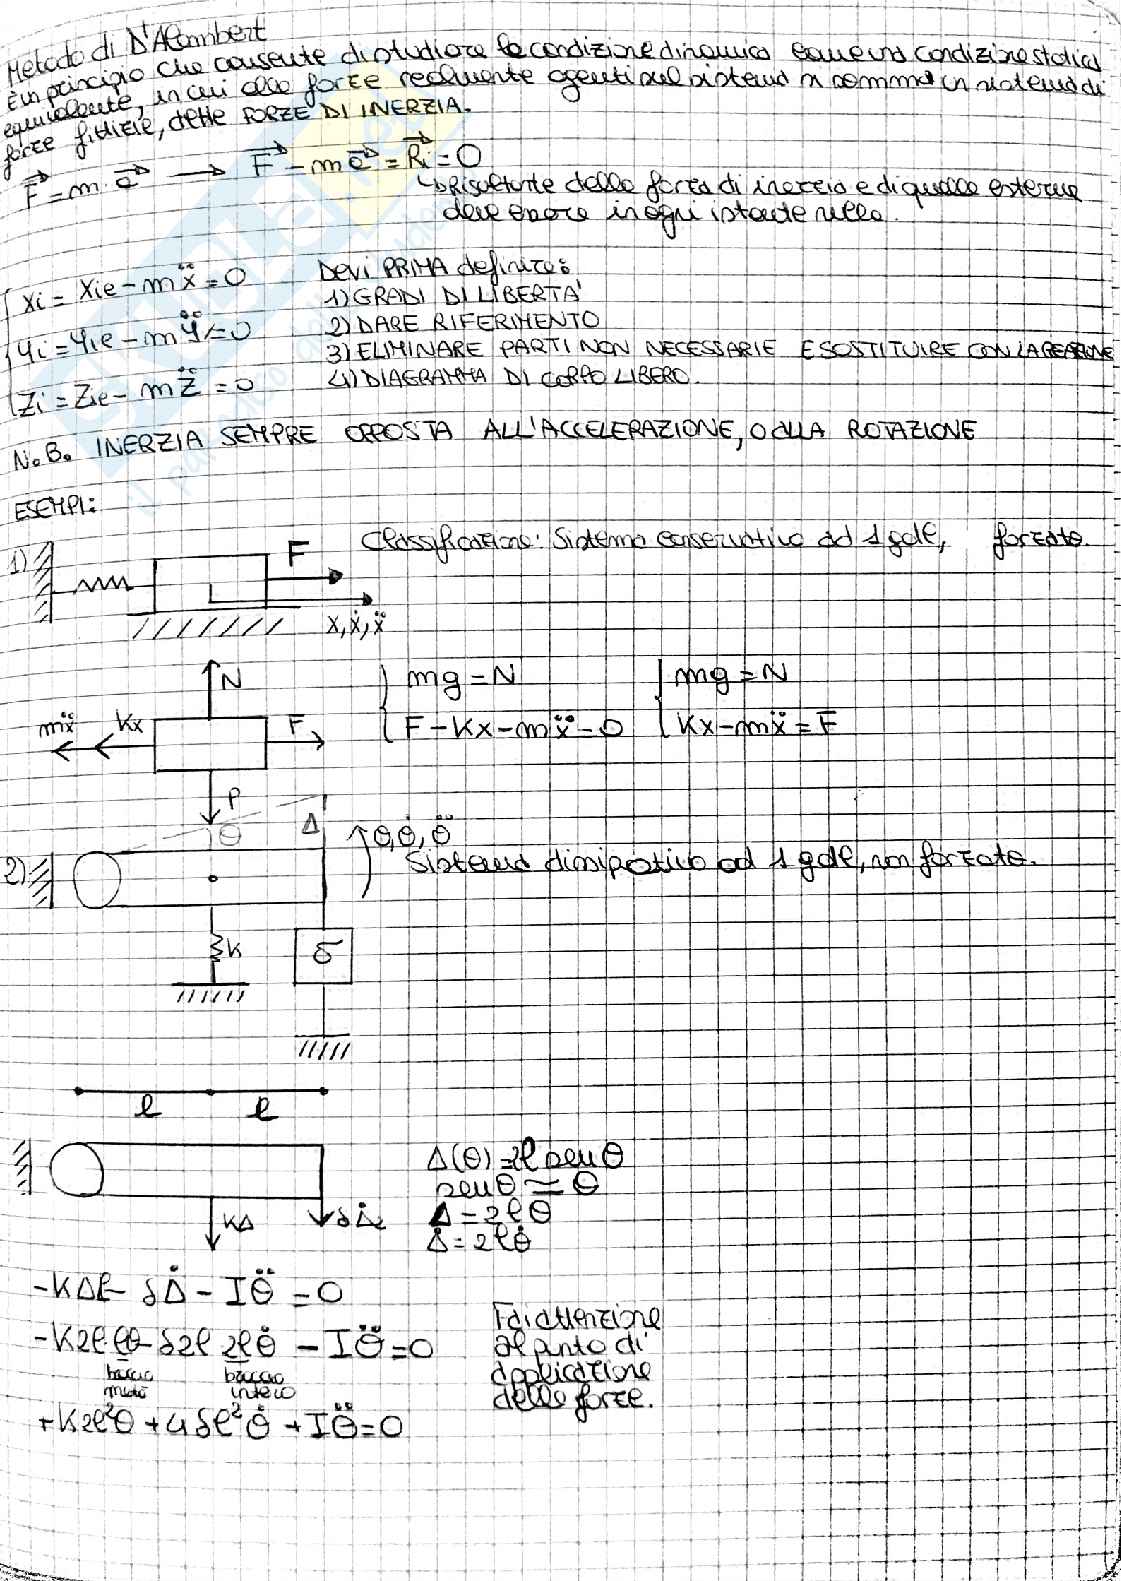 Metodo di D'Alambert
È un principio che consente di studiare la condizione dinamica come una condizione statica
equivalente, in cui alle forze realmente agenti sul sistema si somma un sistema di
forze fittizie, dette FORZE DI INERZIA.
F - m · a → F - m a = Ri = 0
↳ Risultante delle forze di inerzia e di quelle esterne
deve essere in ogni istante nulla.
Xi = Xie - mẍ = 0
Yi = Yie - mÿ = 0
Zi = Zie - mz̈ = 0
Devi PRIMA definire:
1) GRADI DI LIBERTA'
2) DARE RIFERIMENTO
3) ELIMINARE PARTI NON NECESSARIE E SOSTITUIRE CON LA REAZIONE
4) DIAGRAMMA DI CORPO LIBERO.
N.B. INERZIA SEMPRE OPPOSTA ALL'ACCELERAZIONE, O alla ROTAZIONE
ESEMPI:
1)
F
x, ẋ, ẍ
Classificazione: Sistema conservativo ad 1 gdl, forzato.
N
mẍ Kx F
P
mg = N
F - Kx - mẍ = 0
mg = N
Kx - mẍ = F
2)
θ Δ θ, θ̇, θ̈
Sistema dissipativo ad 1 gdl, non forzato.
K
δ
l l
KΔ δΔ̇
Δ(θ) = 2l sen θ
sen θ ≃ θ
Δ = 2lθ
Δ̇ = 2lθ̇
-KΔl - δΔ̇ - Iθ̈ = 0
-K2l·lθ - δ2l 2lθ̇ - Iθ̈ = 0
braccio medio
braccio intero
+K2l²θ + 4δl²θ̇ + Iθ̈ = 0
Fai attenzione
al punto di
applicazione
delle forze.